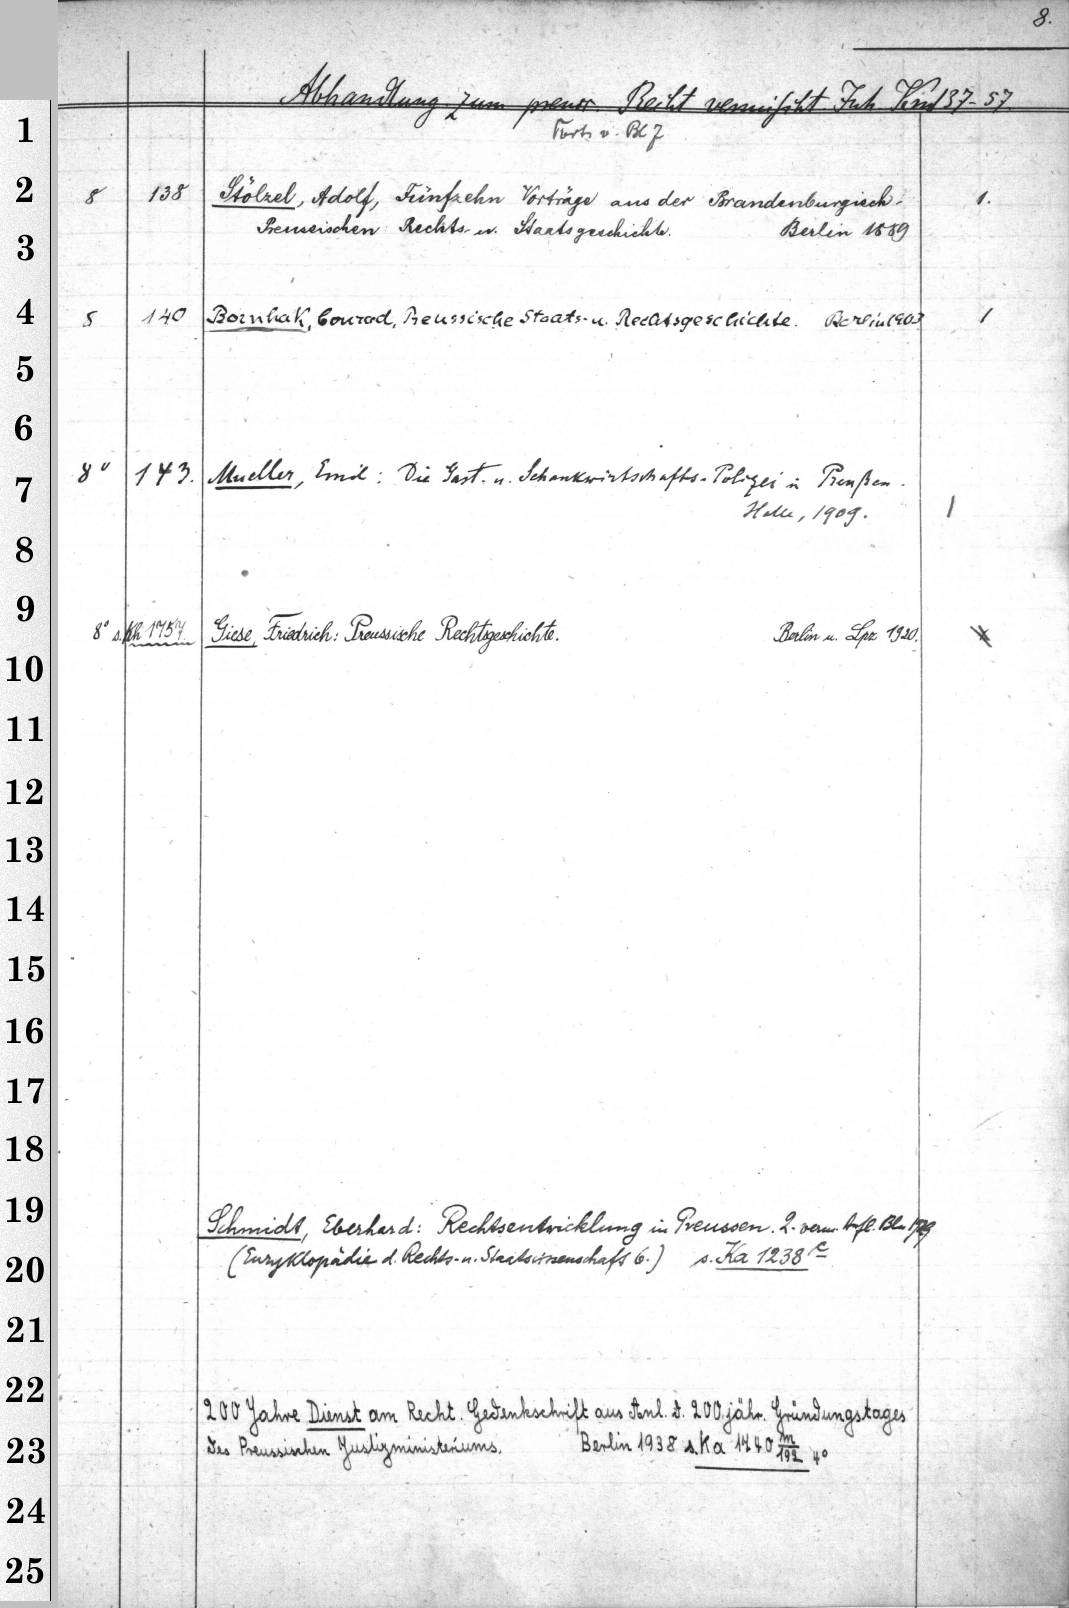 8.
Abhandlung zum preuss. Recht vermischt Inh. 137-57.
Forts v. Bl 7
1
2
8 138 Stölzel, Adolf, Fünfzehn Vorträge aus der Brandenburgisch- 1.
Preussischen Rechts- u. Staatsgeschichte. Berlin 1889
3
4
8 140 Bornhak, Conrad, Preussische Staats- u. Rechtsgeschichte. Berlin 1903 1
5
6
8° 143. Mueller, Emil: Die Gast- u. Schankwirtschafts-Polizei in Preußen.
7
Halle, 1909. 1
8
9
8° s. Kh 1757. Giese, Friedrich: Preussische Rechtsgeschichte. Berlin u. Lpz 1920.
10
11
12
13
14
15
16
17
18
19
Schmidt, Eberhard: Rechtsentwicklung in Preussen. 2. verm. Aufl. Bln 1929
(Enzyklopädie d. Rechts- u. Staatswissenschaft 6.) s. Ka 1238 c
20
21
22
200 Jahre Dienst am Recht. Gedenkschrift aus Anl. d. 200.jähr. Gründungstages
des Preussischen Justizministeriums. Berlin 1938 s. Ka 1440 m/192 4°
23
24
25